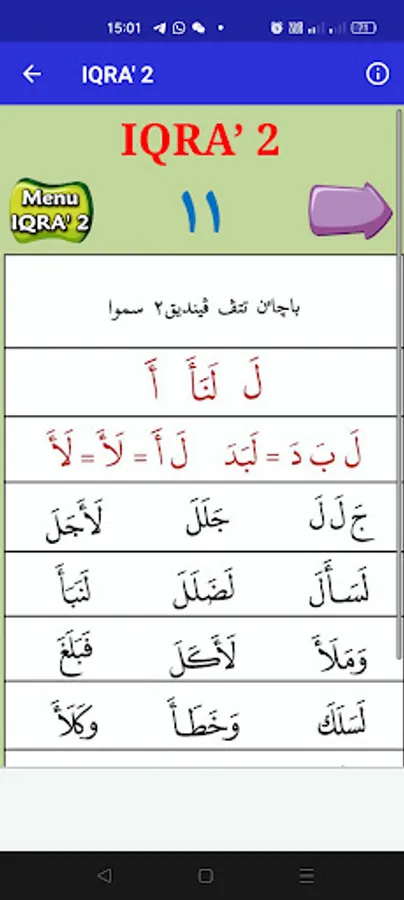 15:01
71
IQRA' 2
IQRA’ 2
Menu
IQRA' 2
١١
باچاءن تتڤ ڤينديق٢ سموا
لَ لَنَأَ أَ
لَ بَ دَ = لَبَدَ لَ أَ = لَأَ = لَأَ
جَ لَ لَ جَلَلَ لَأَجَلَ
لَسَأَلَ لَضَلَلَ لَنَبَأَ
وَمَلَأَ لَأَكَلَ فَبَلَغَ
لَسَلَكَ وَخَطَأَ وَكَلَأَ